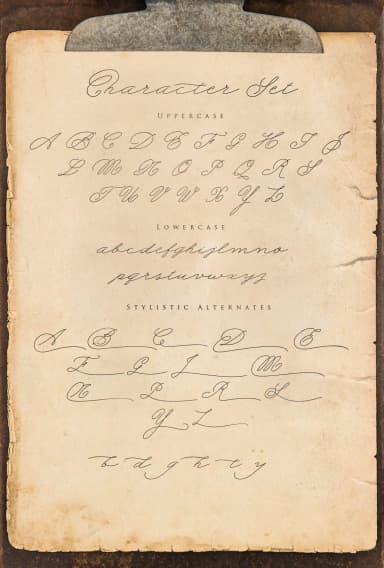 Character Set
UPPERCASE
A B C D E F G H I J
L M N O P Q R S
T U V W X Y Z
LOWERCASE
abcdefghijlmno
pqrstuvwxyz
STYLISTIC ALTERNATES
A B C D E
F G J M
N P R S
Y Z
b d g h t y